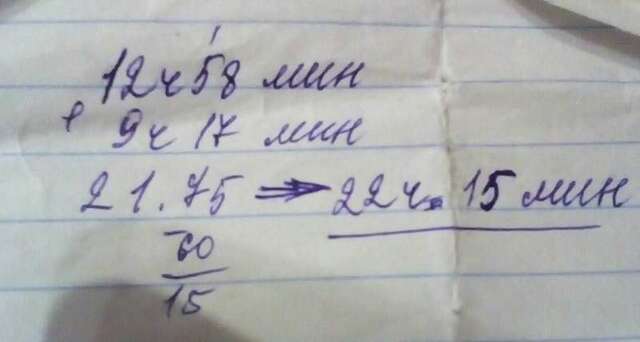 12ч 58 мин
+ 9ч 17 мин
21.75 ⇒ 22ч. 15 мин
60
15